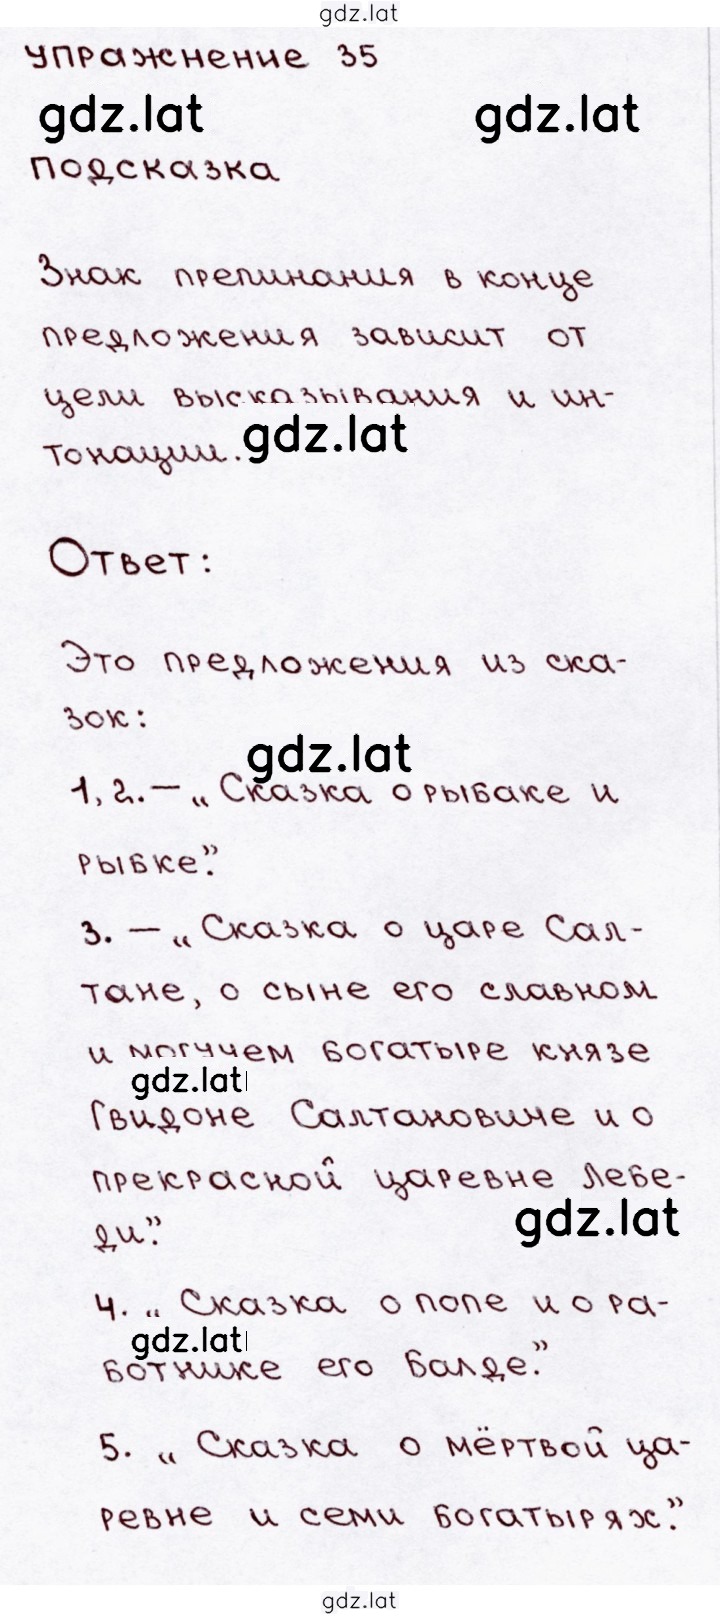 gdz.lat
упражнение 35
gdz.lat gdz.lat
подсказка
Знак препинания в конце
предложения зависит от
цели высказывания и ин-
тонации.
gdz.lat
Ответ:
Это предложения из ска-
зок:
gdz.lat
1, 2. – „ Сказка о рыбаке и
рыбке”.
3. – „ Сказка о царе Сал-
тане, о сыне его славном
и могучем богатыре князе
gdz.lat
Гвидоне Салтановиче и о
прекрасной царевне Лебе-
ди”.
gdz.lat
4. „ Сказка о попе и о ра-
gdz.lat
ботнике его Балде.”
5. „ Сказка о мёртвой ца-
ревне и семи богатырях.”
gdz.lat